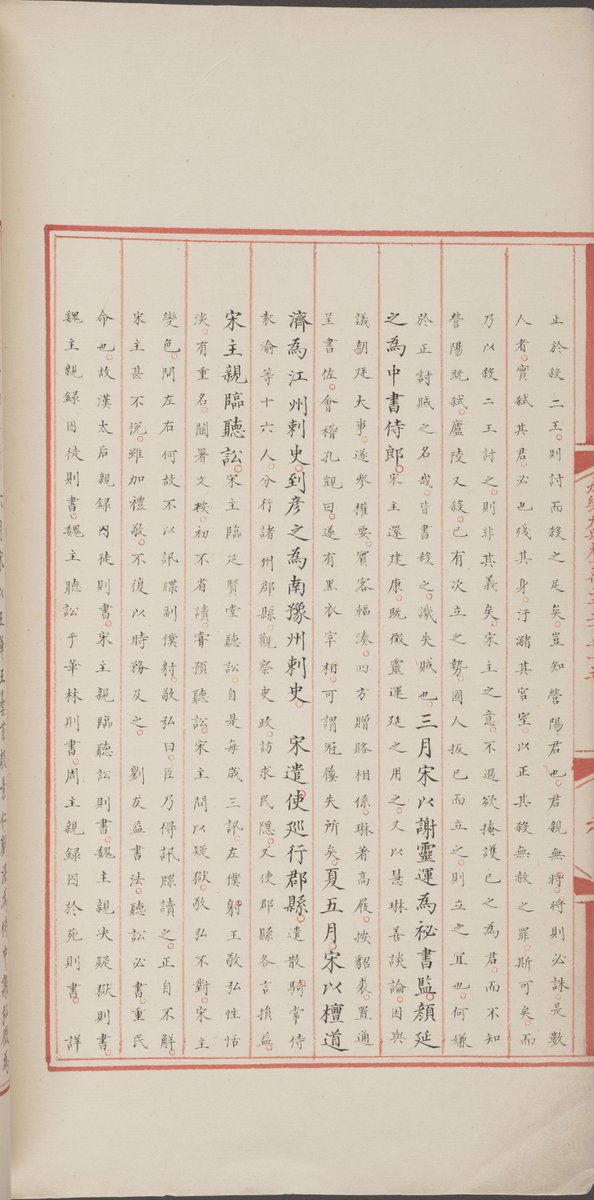 止於殺二王。則討而殺之足矣。豈知營陽君也。君親無將。將則必誅。是數
人者。實弒其君。必也殘其身。汙瀦其宮室。以正其殺無赦之罪。斯可矣。而
乃以殺二王討之。則非其義矣。宋主之意。不過欲掩護已之為君。而不知
營陽既弒。廬陵又殺。已有次立之勢。國人扳已而立之。則立之宜也。何嫌
於正討賊之名哉。皆書殺之。譏失賊也。三月。宋以謝靈運為祕書監。顏延
之為中書侍郎。宋主還建康。既徵靈運延之用之。又以慧琳善談論。因與
議朝廷大事。遂參權要。賓客輻湊。四方贈賂相係。琳著高屐。披貂裘。置通
呈書佐。會稽孔覬曰。遂有黑衣宰相。可謂冠屨失所矣。夏五月。宋以檀道
濟為江州刺史。到彥之為南豫州刺史。宋遣使巡行郡縣。遣散騎常侍
袁渝等十六人。分行諸州郡縣。觀察吏政。訪求民隱。又使郡縣各言損益。
宋主親臨聽訟。宋主臨延賢堂聽訟。自是每歲三訊。左僕射王敬弘性恬
淡。有重名。關署文案。初不省讀。嘗預聽訟。宋主問以疑獄。敬弘不對。宋主
變色。問左右何故不以訊牒副僕射。敬弘曰。臣乃得訊牒讀之。正自不解。
宋主甚不悅。雖加禮敬。不復以時務及之。劉友益書法。聽訟必書。重民
命也。故漢太后親錄囚徒則書。宋主親臨聽訟則書。魏主親決疑獄則書。
魏主親錄囚徒則書。魏主聽訟于華林則書。周主親錄囚於死則書。詳